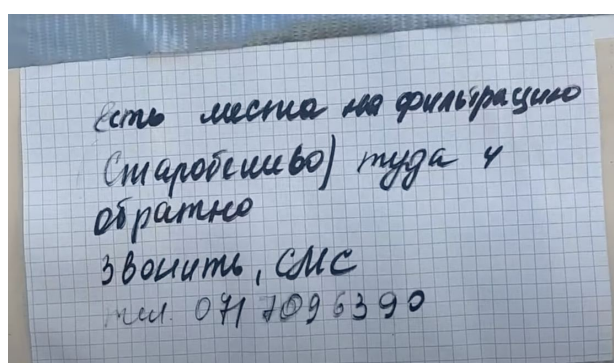 есть места на фильтрацию
Старобешево) туда и
обратно
звонить, СМС
тел. 071 7096390